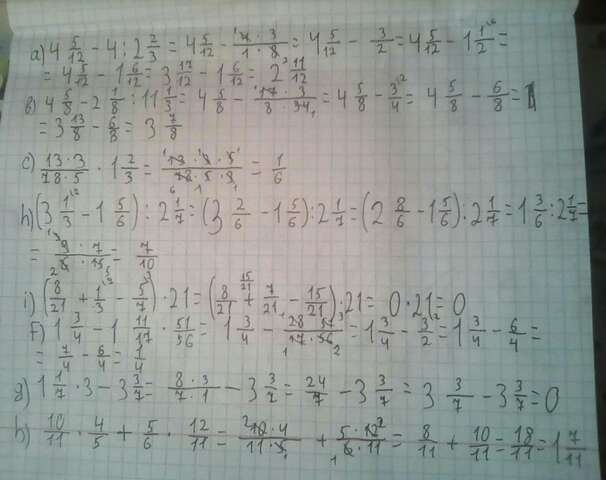 a) 4 5/12 - 4 : 2 2/3 = 4 5/12 - 4·3/1·8 = 4 5/12 - 3/2 = 4 5/12 - 1 1/2 =
= 4 5/12 - 1 6/12 = 3 17/12 - 1 6/12 = 2 11/12
b) 4 5/8 - 2 1/8 : 11 1/3 = 4 5/8 - 17·3/8·34 = 4 5/8 - 3/4 = 4 5/8 - 6/8 =
= 3 13/8 - 6/8 = 3 7/8
c) 13·3/78·5 · 1 2/3 = 13·3·5/78·5·3 = 1/6
h) (3 1/3 - 1 5/6) : 2 1/7 = (3 2/6 - 1 5/6) : 2 1/7 = (2 8/6 - 1 5/6) : 2 1/7 = 1 3/6 : 2 1/7 =
= 9·7/6·15 = 7/10
i) (8/21 + 1/3 - 5/7) · 21 = (8/21 + 7/21 - 15/21) · 21 = 0 · 21 = 0
F) 1 3/4 - 1 11/17 · 51/56 = 1 3/4 - 28·51/17·56 = 1 3/4 - 3/2 = 1 3/4 - 6/4 =
= 7/4 - 6/4 = 1/4
g) 1 1/7 · 3 - 3 3/7 = 8·3/7·1 - 3 3/7 = 24/7 - 3 3/7 = 3 3/7 - 3 3/7 = 0
h) 10/11 · 4/5 + 5/6 · 12/11 = 10·4/11·5 + 5·12/6·11 = 8/11 + 10/11 = 18/11 = 1 7/11